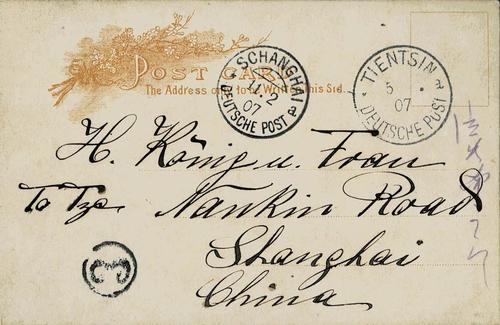 POST CARD
The Address only to be Written this Side.
SCHANGHAI
2
07
DEUTSCHE POST
a
TIENTSIN
a
5
07
DEUTSCHE POST
H. König u. Frau
To Tze Nankin Road
Shanghai
China
3